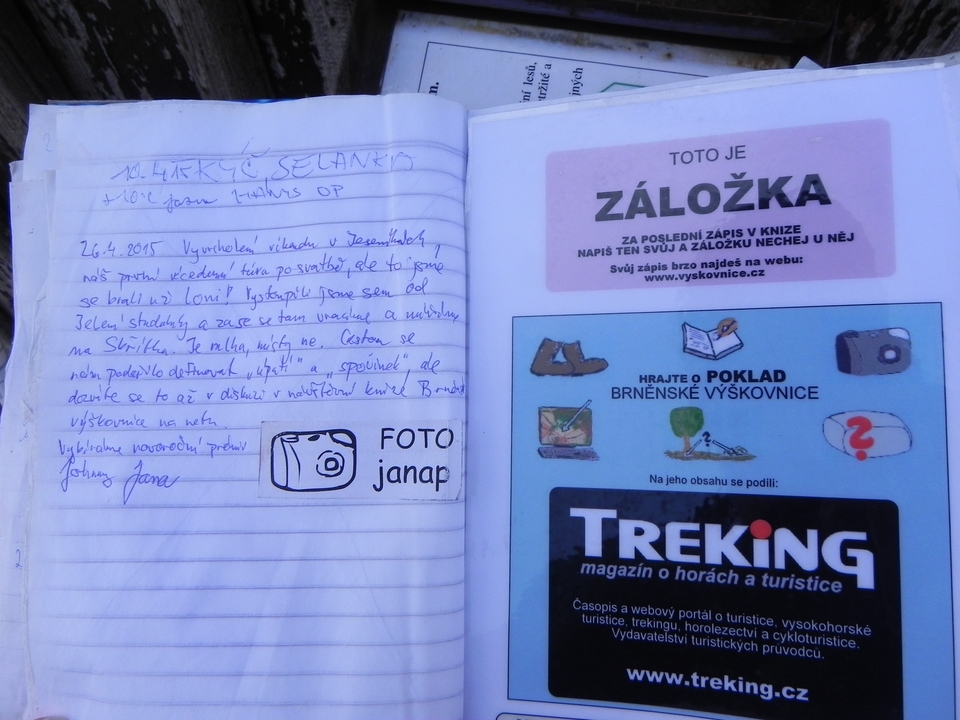 ní lesů,
etržité a
jných
m.
10.4.15 KYČ, SELANKA
26.4.2015 Vyvrcholení víkendu v Jeseníkách,
náš první vícedenní túra po svatbě, ale to jsme
se brali už loni! Vystoupili jsme sem od
Jelení studánky a zase se tam vracíme a
na Skřítka. Je mlha, místy ne. Cestou se
nám podařilo definovat „úpatí" a „spočinek", ale
dozvíte se to až v diskuzi v návštěvní knize Brněnské
výškovnice na netu.
Vybíráme novoroční prémii
Johnny Jana
FOTO
janap
TOTO JE
ZÁLOŽKA
ZA POSLEDNÍ ZÁPIS V KNIZE
NAPIŠ TEN SVŮJ A ZÁLOŽKU NECHEJ U NĚJ
Svůj zápis brzo najdeš na webu:
www.vyskovnice.cz
HRAJTE O POKLAD
BRNĚNSKÉ VÝŠKOVNICE
?
?
Na jeho obsahu se podíli:
TREKiNG
magazín o horách a turistice
Časopis a webový portál o turistice, vysokohorské
turistice, trekingu, horolezectví a cykloturistice.
Vydavatelství turistických průvodců.
www.treking.cz